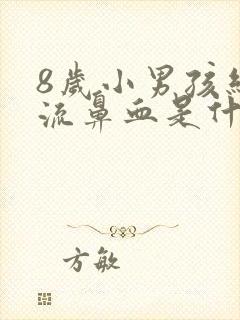 8歲小男孩經
流鼻血是什
方敏